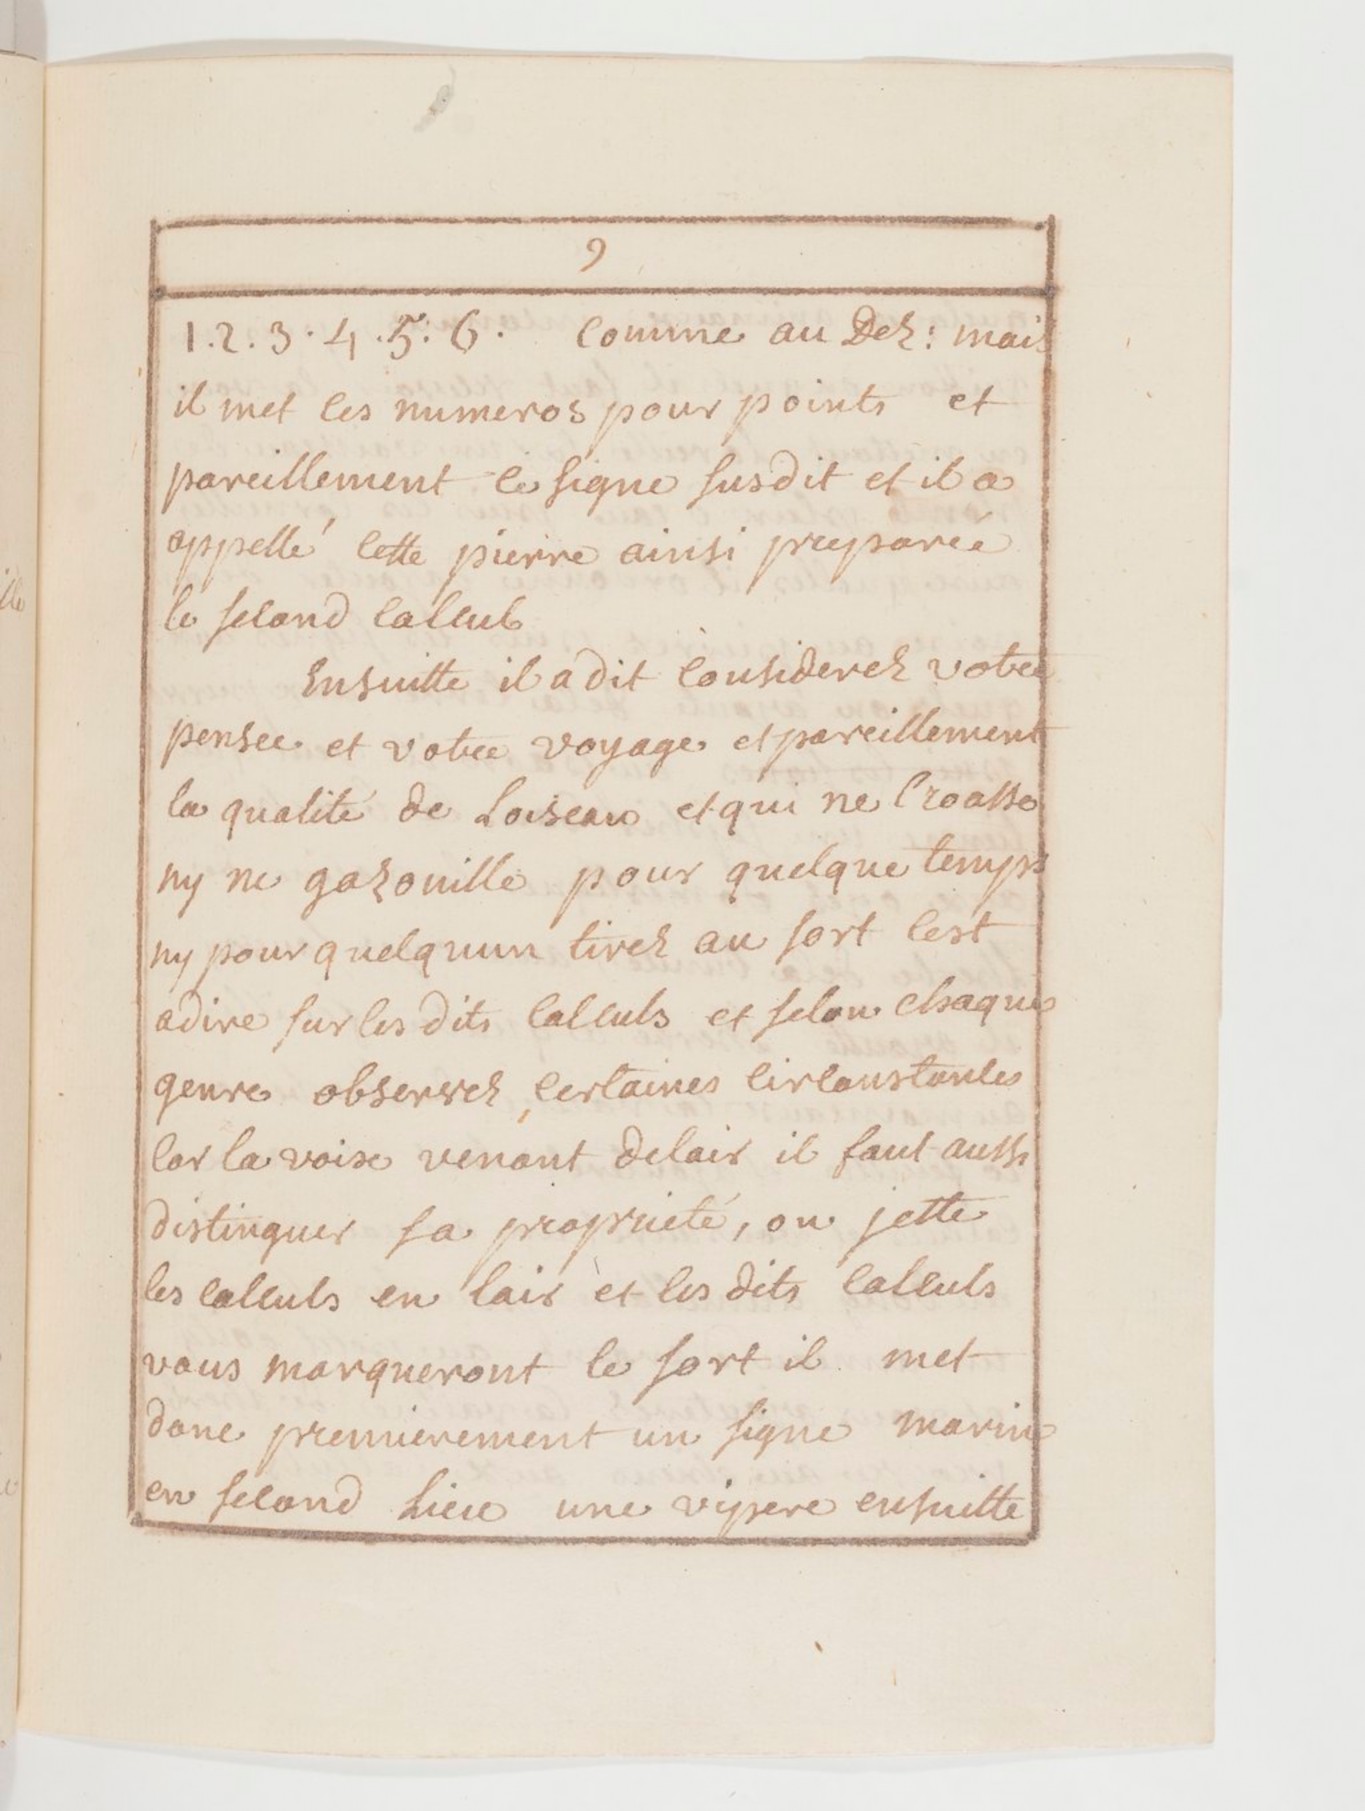 9
1.2.3.4.5:6. Comme au Dez: mais
il met les numeros pour points et
pareillement le signe susdit et il a
appellé cette pierre ainsi preparée
le second calcul
Ensuitte il a dit considerez votre
pensee et votre voyage et pareillement
la qualité de Loiseau et qui ne croasse
ny ne gazouille pour quelque temps
ny pour quelquun tirez au sort cest
adire sur les dits calculs et selon chaque
genre observez certaines circonstances
car la voix venant delair il faut aussi
distinguer sa proprieté, on jette
les calculs en lair et les dits calculs
vous marqueront le sort il met
donc premierement un signe marin
en second Lieu une vipere ensuitte